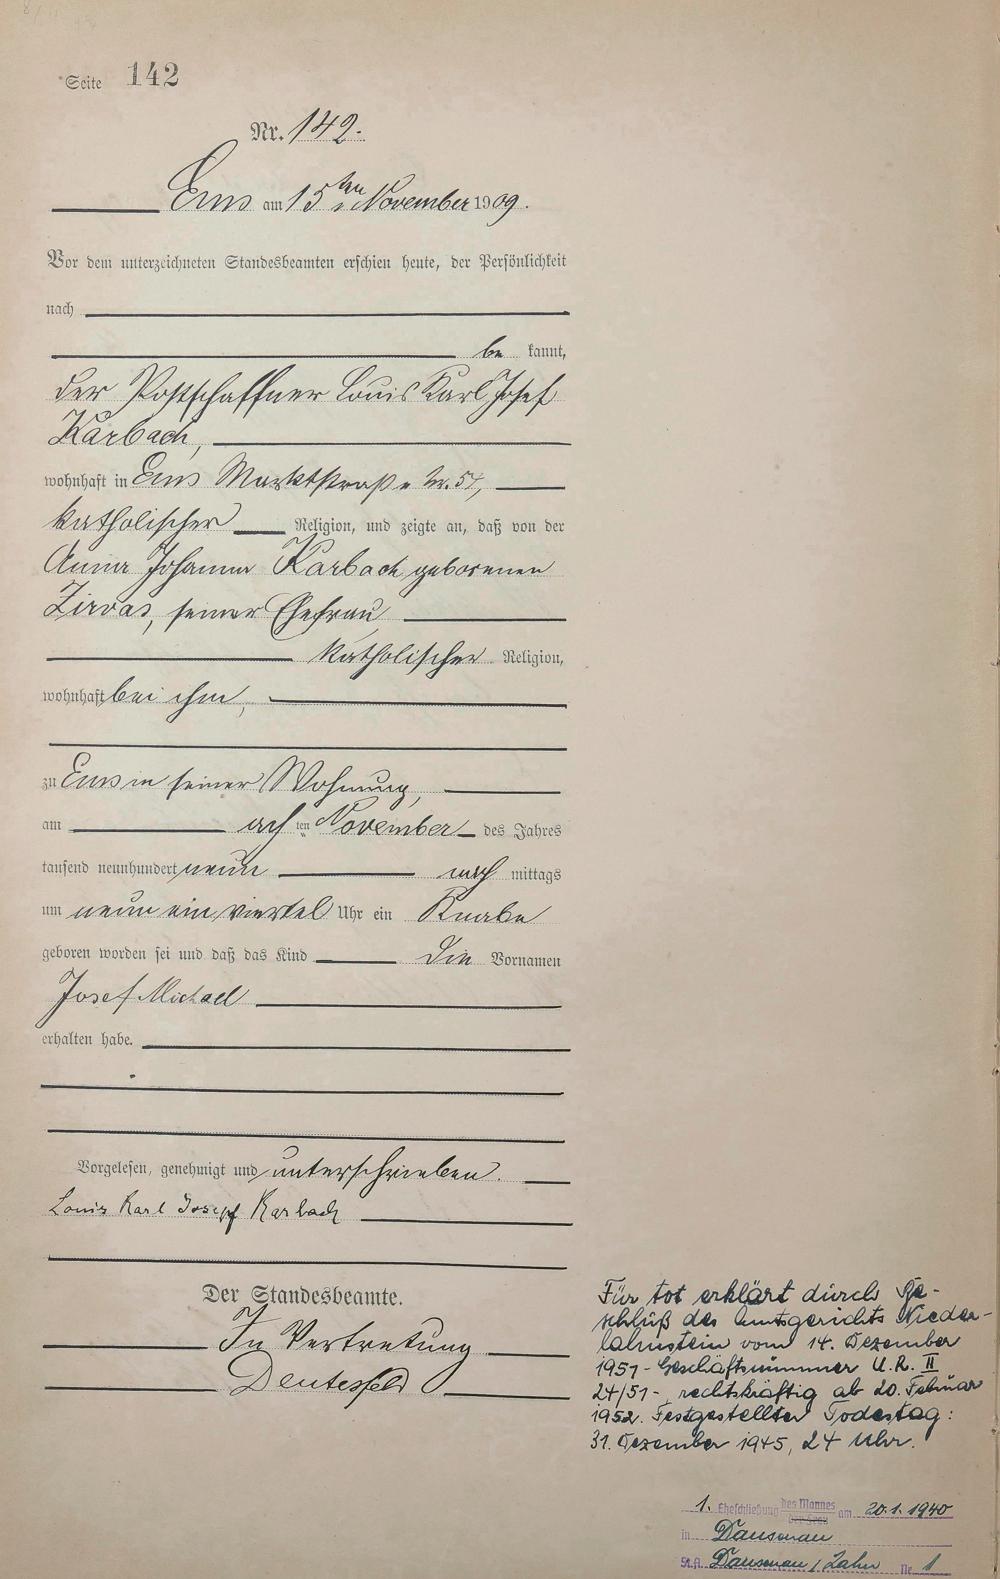 Seite 142
Nr. 142.
Ems am 15ten November 1909.
Vor dem unterzeichneten Standesbeamten erschien heute, der Persönlichkeit
nach
be kannt,
der Postschaffner Louis Karl Josef
Karbach,
wohnhaft in Ems Marktstraße Nr. 54,
katholischer Religion, und zeigte an, daß von der
Anna Johanna Karbach geborenen
Zirvas, seiner Ehefrau
katholischer Religion,
wohnhaft bei ihm,
zu Ems in seiner Wohnung,
am achten November des Jahres
tausend neunhundert neun nach mittags
um neun ein viertel Uhr ein Knabe
geboren worden sei und daß das Kind die Vornamen
Josef Michael
erhalten habe.
Vorgelesen, genehmigt und unterschrieben.
Louis Karl Josepf Karbach
Der Standesbeamte.
In Vertretung
Deutesfeld
Für tot erklärt durch Be-
schluß des Amtsgerichts Nieder-
lahnstein vom 14. Dezember
1951 - Geschäftsnummer U.R. II
24/51 -, rechtskräftig ab 20. Februar
1952. Festgestellter Todestag:
31. Dezember 1945, 24 Uhr.
1. Eheschließung des Mannes der Frau am 20.1.1940
in Dausenau
St.A. Dausenau / Lahn Nr. 1